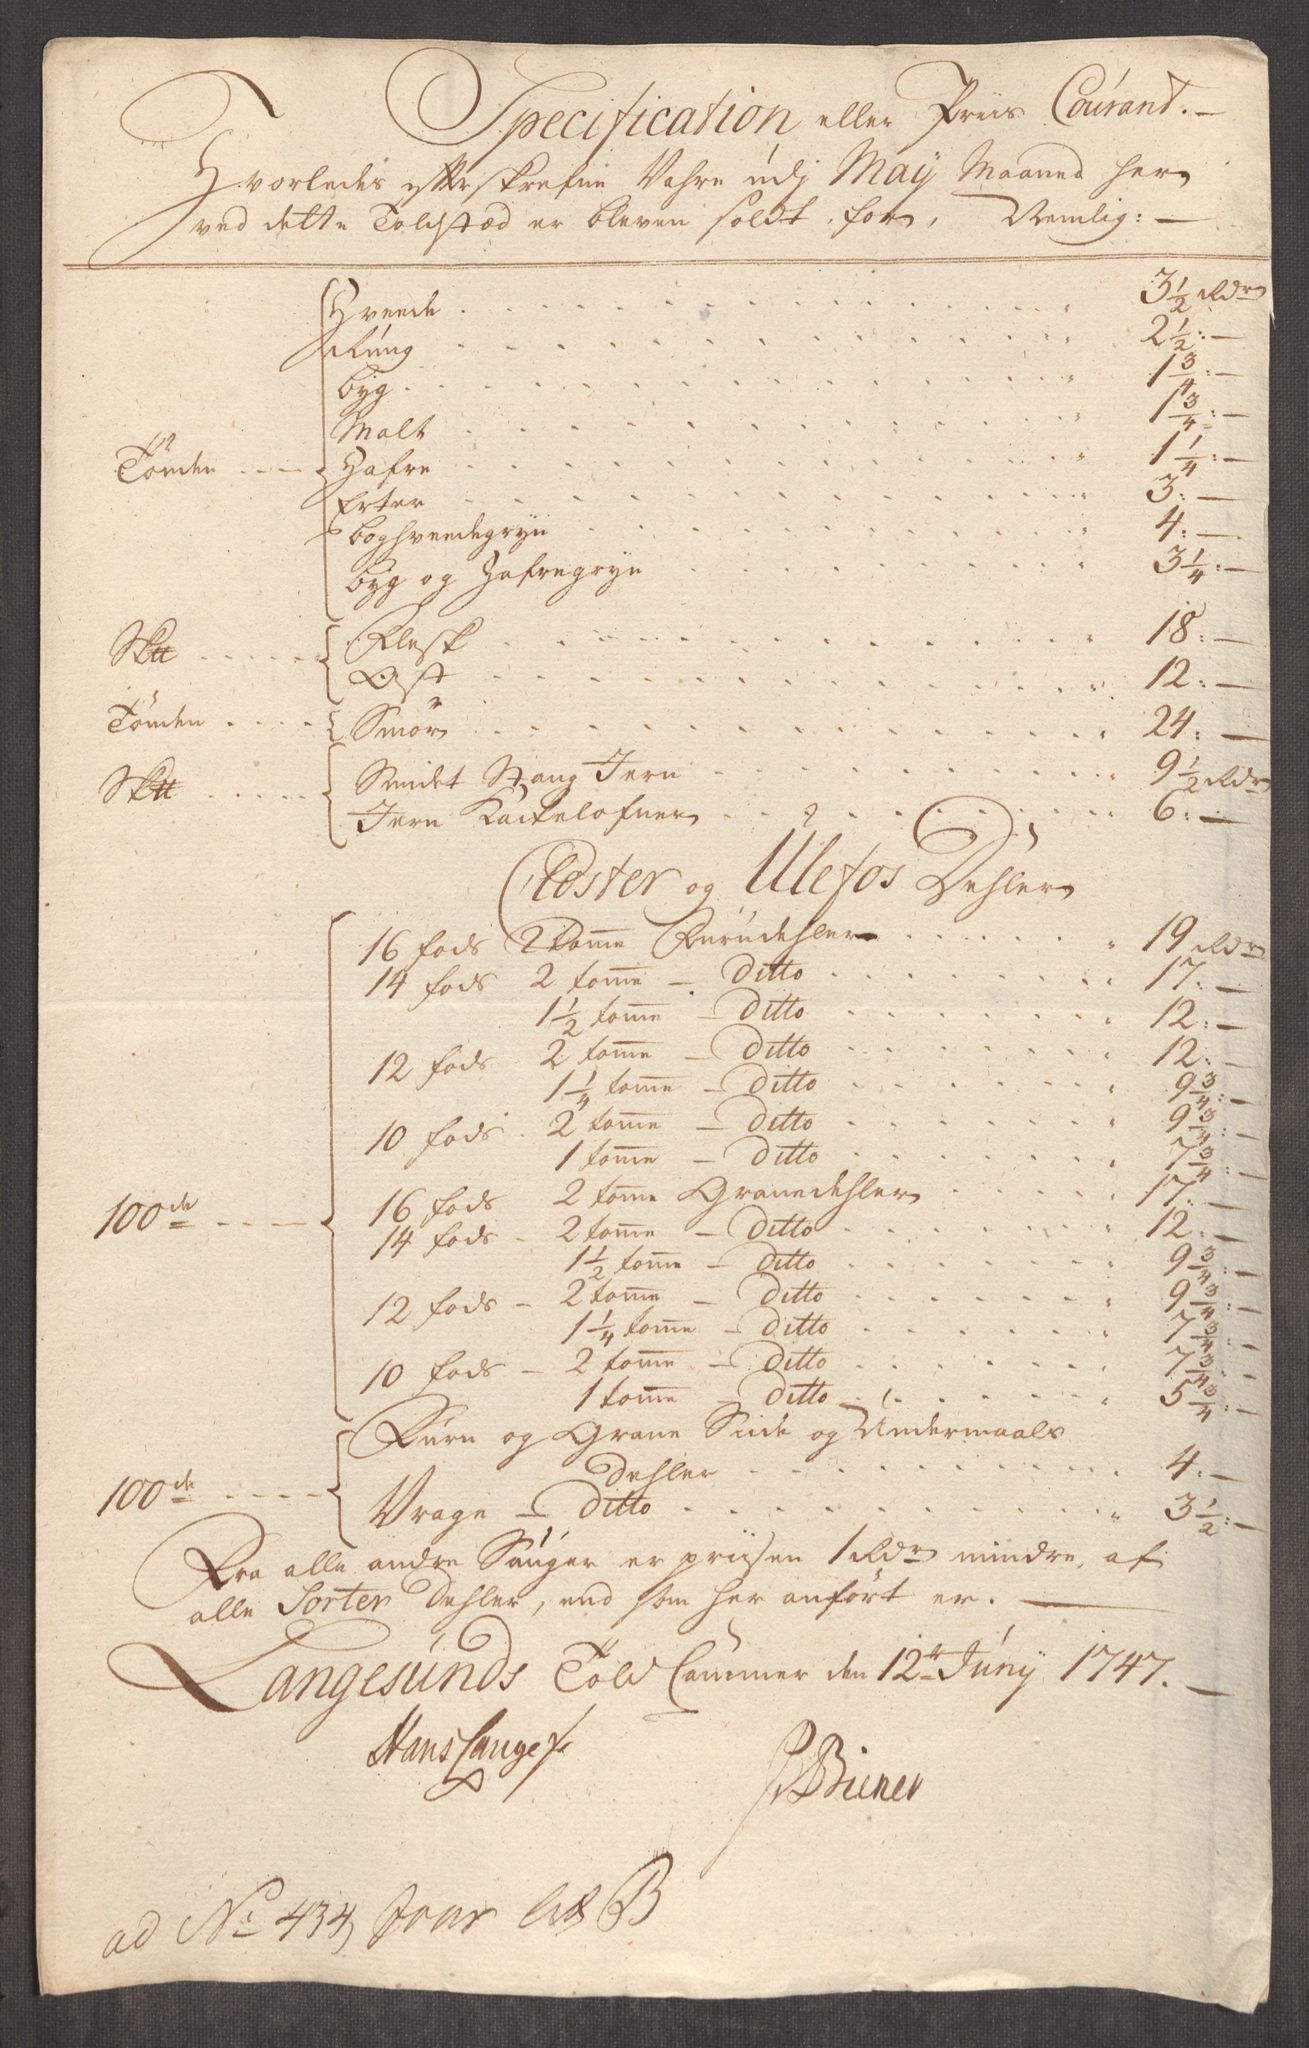 Specification eller Priis Courant. —
Hvorledes efterskrefne Vahre udj Maÿ Maaned her
ved dette Toldsted er bleven soldt for, Nemlig: —
Tönden ---- Hvede . . . 3 1/2 Rdr
Rúug . . . 2 1/2: —
Byg . . . 1 3/4: —
Malt . . . 1 3/4: —
Hafre . . . 1 1/4: —
Erter . . . 3: —
Boghvedegryn . . . 4: —
Byg og Hafregryn . . . 3 1/4: —
Sk℔ . . . Flesk . . . 18: —
Ost . . . 12: —
Tönden . . . Smör . . . 24: —
Sk℔ . . . Smidet Stang Jern . . . 9 1/2 Rdr
Jern Kackelofner . . . 6: —
Closter og Ulefos Dehler
100de ---- 16 fods 2 tomme Furúdehler . . . 19 Rdr
14 fods 2 tomme — Ditto . . . 17: —
1 1/2 tomme — Ditto . . . 12: —
12 fods 2 tomme — Ditto . . . 12: —
1 1/4 tomme — Ditto . . . 9 3/4: —
10 fods 2 tomme — Ditto . . . 9 3/4: —
1 tomme — Ditto . . . 7 3/4: —
16 fods 2 tomme Granedehler . . . 17: —
14 fods - 2 tomme — Ditto . . . 12: —
1 1/2 tomme — Ditto . . . 9 3/4: —
12 fods - 2 tomme — Ditto . . . 9 3/4: —
1 1/4 tomme — Ditto . . . 7 3/4: —
10 fods - 2 tomme — Ditto . . . 7 3/4: —
1 tomme — Ditto . . . 5 3/4: —
100de ---- Furu og Grane Side og Undermaals
Dehler . . . 4: —
Vrage — Ditto . . . 3 1/2: —
Fra alle andre Sáuger er priisen 1 Rdr mindre, af
alle Sorter Dehler, end som her anfört er. —
Langesúnds Told Cammer den 12te Júny 1747. —
Hans Lange
Biener
ad No 434 Jour Lit B